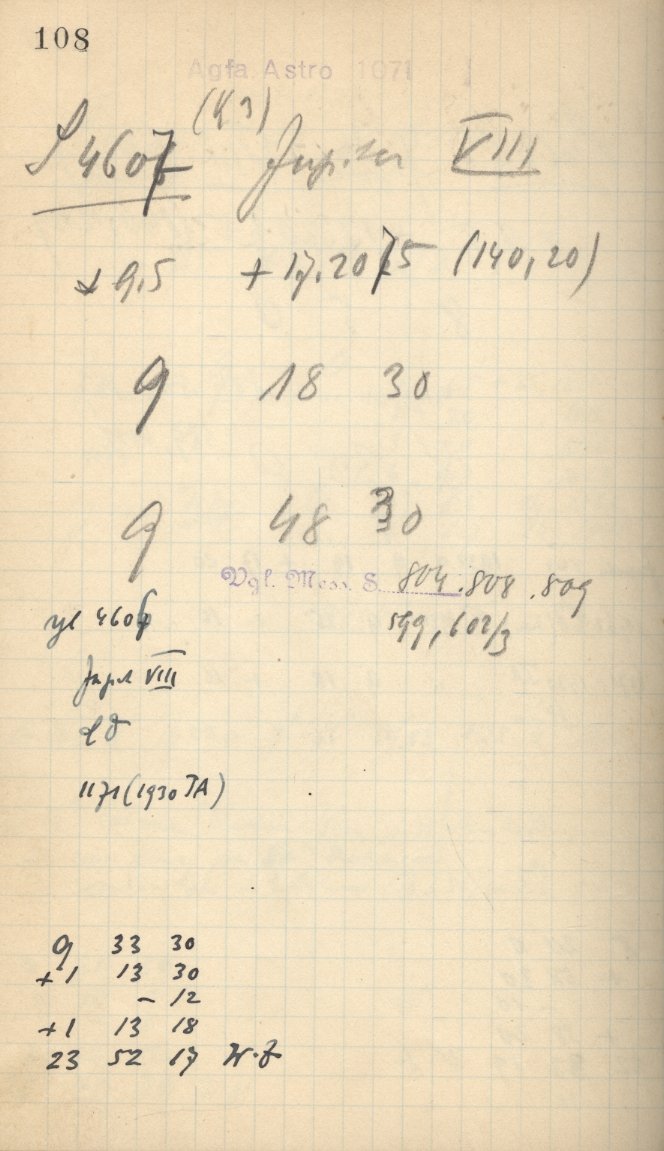 108
Agfa Astro 1071
4607 Jupiter VIII
9.5 + 17.2075 (140,20)
9 18 30
9 48 30
Vgl. Mess. S. 804.808.809
599, 602/3
4607
Jup. VIII
1171 (1930 TA)
9 33 30
+1 13 30
- 12
+1 13 18
23 52 17